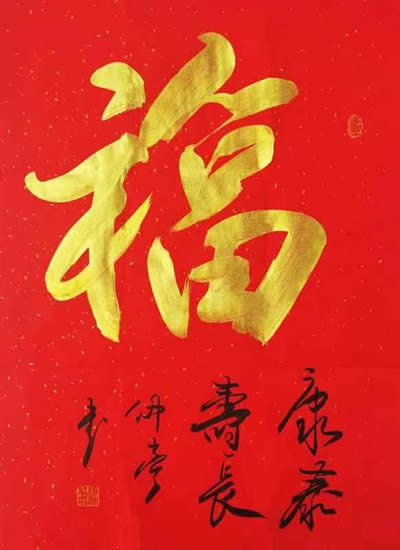 福
康泰
壽長
书